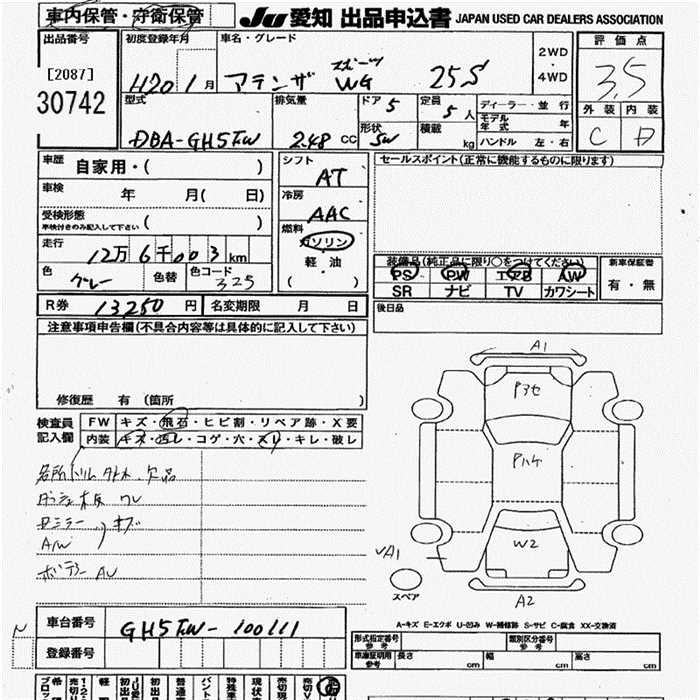 車内保管・守衛保管
JU 愛知 出品申込書 JAPAN USED CAR DEALERS ASSOCIATION
出品番号
[2087]
30742
初度登録年月
H20 1月
車名・グレード
スポーツ
アテンザ WG 25S
2WD
・
4WD
評価点
3.5
外装 内装
C D
型式
DBA-GH5FW
排気量
2.48 CC
ドア 5
形状 SW
定員 5人
積載 kg
ディーラー・並行
モデル年式 年
ハンドル 左・右
車歴 自家用・( )
車検 年 月( 日)
受検形態
車検付きのみ記入して下さい ( )
走行 12万6千003km
色 グレー 色替 色コード 325
シフト AT
冷房 AAC
燃料
ガソリン
軽・油
( )
セールスポイント(正常に機能するものに限ります)
装備品(純正品に限り○をつけてください)
PS PW エアB AW
SR ナビ TV カワシート
新車保証書
有・無
後日品
R券 13250円 名変期限 月 日
注意事項申告欄(不具合内容等は具体的に記入して下さい)
修復歴 有 (箇所
検査員
記入欄
FW キズ・飛石・ヒビ割・リペア跡・X要
内装 キズ・汚レ・コゲ・穴・スレ・キレ・破レ
A1
P3セ
Pハケ
W2
A1
A2
スペア
A-キズ E-エクボ U-凹み W-補修跡 S-サビ C-腐食 XX-交換済
車台番号 GH5FW-100111
登録番号
形式指定番号
参考
類別区分番号
参考
車庫証明用
参考
長さ cm 幅 cm 高さ cm